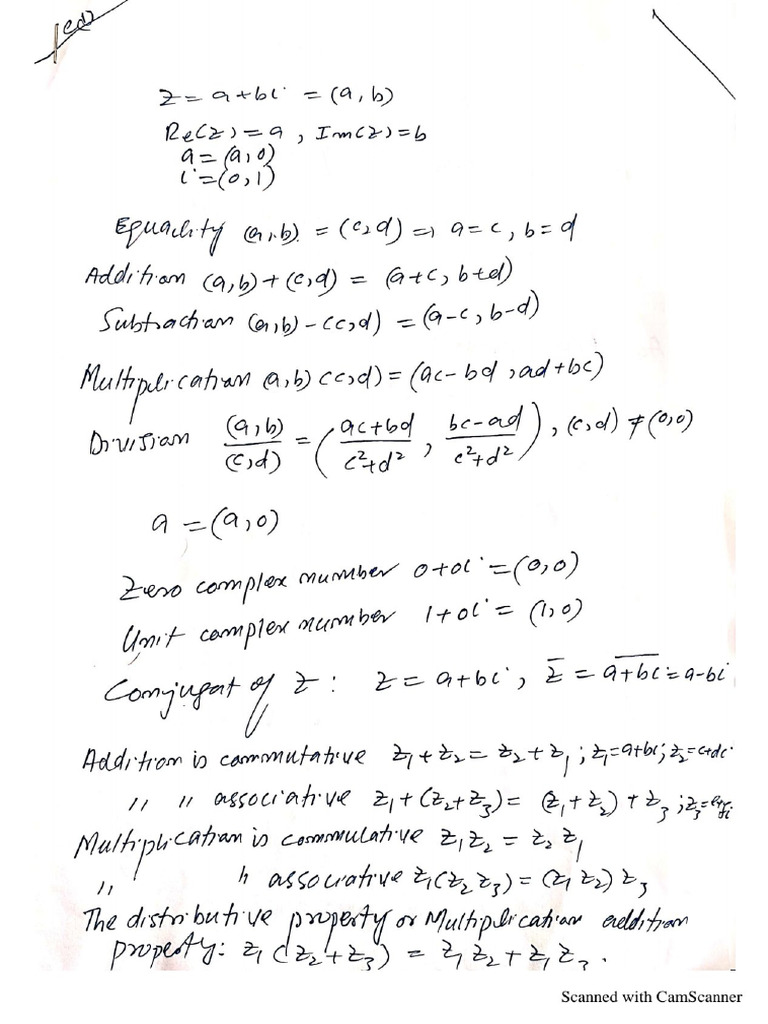 z = a+bi = (a, b)
Re(z) = a , Im(z) = b
a = (a, 0)
i = (0, 1)
Equality (a, b) = (c, d) ⇒ a = c, b = d
Addition (a, b) + (c, d) = (a+c, b+d)
Subtraction (a, b) - (c, d) = (a-c, b-d)
Multiplication (a, b) (c, d) = (ac - bd , ad + bc)
Division (a, b)/(c, d) = ( (ac+bd)/(c²+d²) , (bc-ad)/(c²+d²) ) , (c, d) ≠ (0, 0)
a = (a, 0)
Zero complex number 0+0i = (0, 0)
Unit complex number 1+0i = (1, 0)
Conjugat of z : z = a+bi , z̄ = \overline{a+bi} = a-bi
Addition is commutative z₁ + z₂ = z₂ + z₁ ; z₁=a+bi; z₂=c+di
〃 〃 associative z₁ + (z₂+z₃) = (z₁+z₂) + z₃ ; z₃=e+fi
Multiplication is commulative z₁z₂ = z₂z₁
〃 〃 associative z₁(z₂z₃) = (z₁z₂)z₃
The distributive property or Multiplication addition
property: z₁(z₂+z₃) = z₁z₂ + z₁z₃ .
Scanned with CamScanner